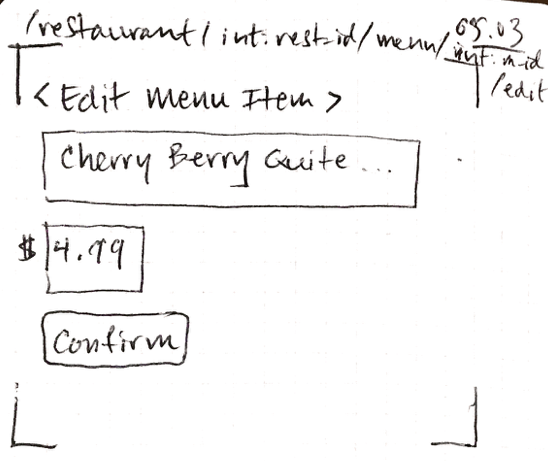 05.03
/restaurant/int:rest-id/menu/int:m-id
/edit
<Edit Menu Item>
Cherry Berry Quite...
$ 4.99
Confirm